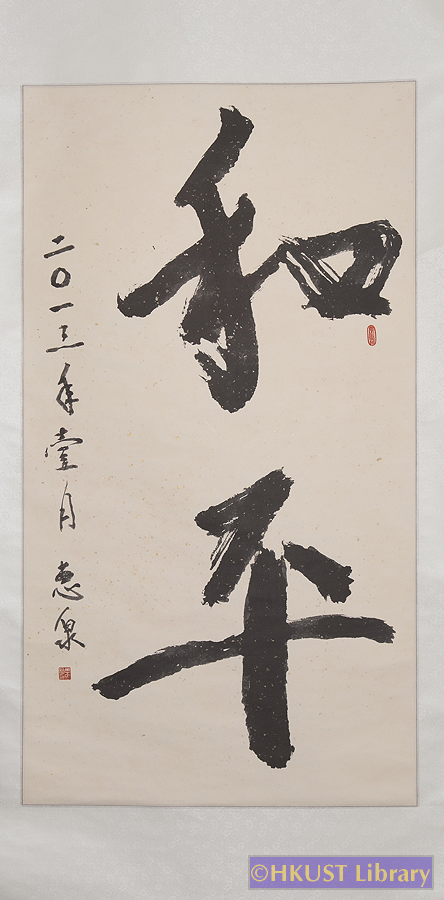 和平
二〇一三年壹月 惠泉
©HKUST Library